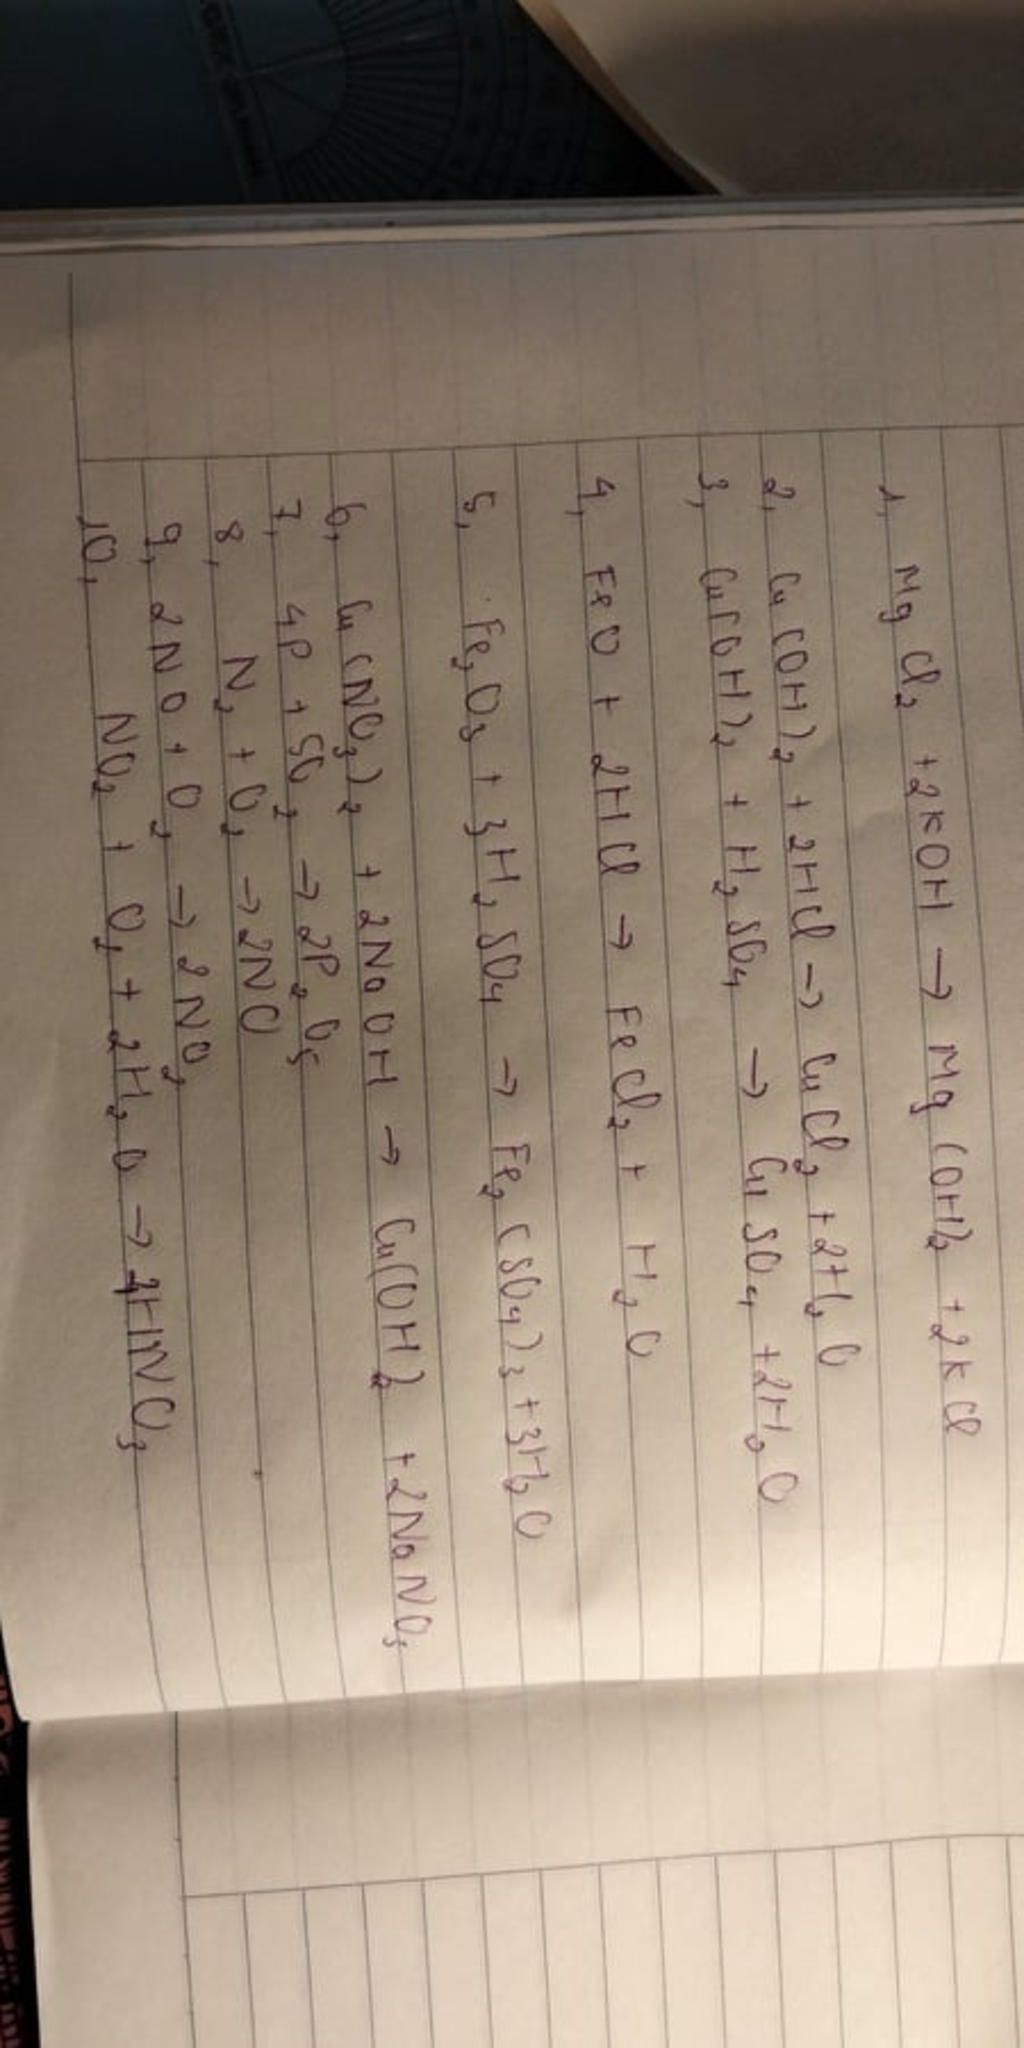 1, MgCl₂ + 2KOH → Mg(OH)₂ + 2KCl
2, Cu(OH)₂ + 2HCl → CuCl₂ + 2H₂O
3, Cu(OH)₂ + H₂SO₄ → CuSO₄ + 2H₂O
4, FeO + 2HCl → FeCl₂ + H₂O
5, Fe₂O₃ + 3H₂SO₄ → Fe₂(SO₄)₃ + 3H₂O
6, Cu(NO₃)₂ + 2NaOH → Cu(OH)₂ + 2NaNO₃
7, 4P + 5O₂ → 2P₂O₅
8, N₂ + O₂ → 2NO
9, 2NO + O₂ → 2NO₂
10, NO₂ + O₂ + 2H₂O → 4HNO₃